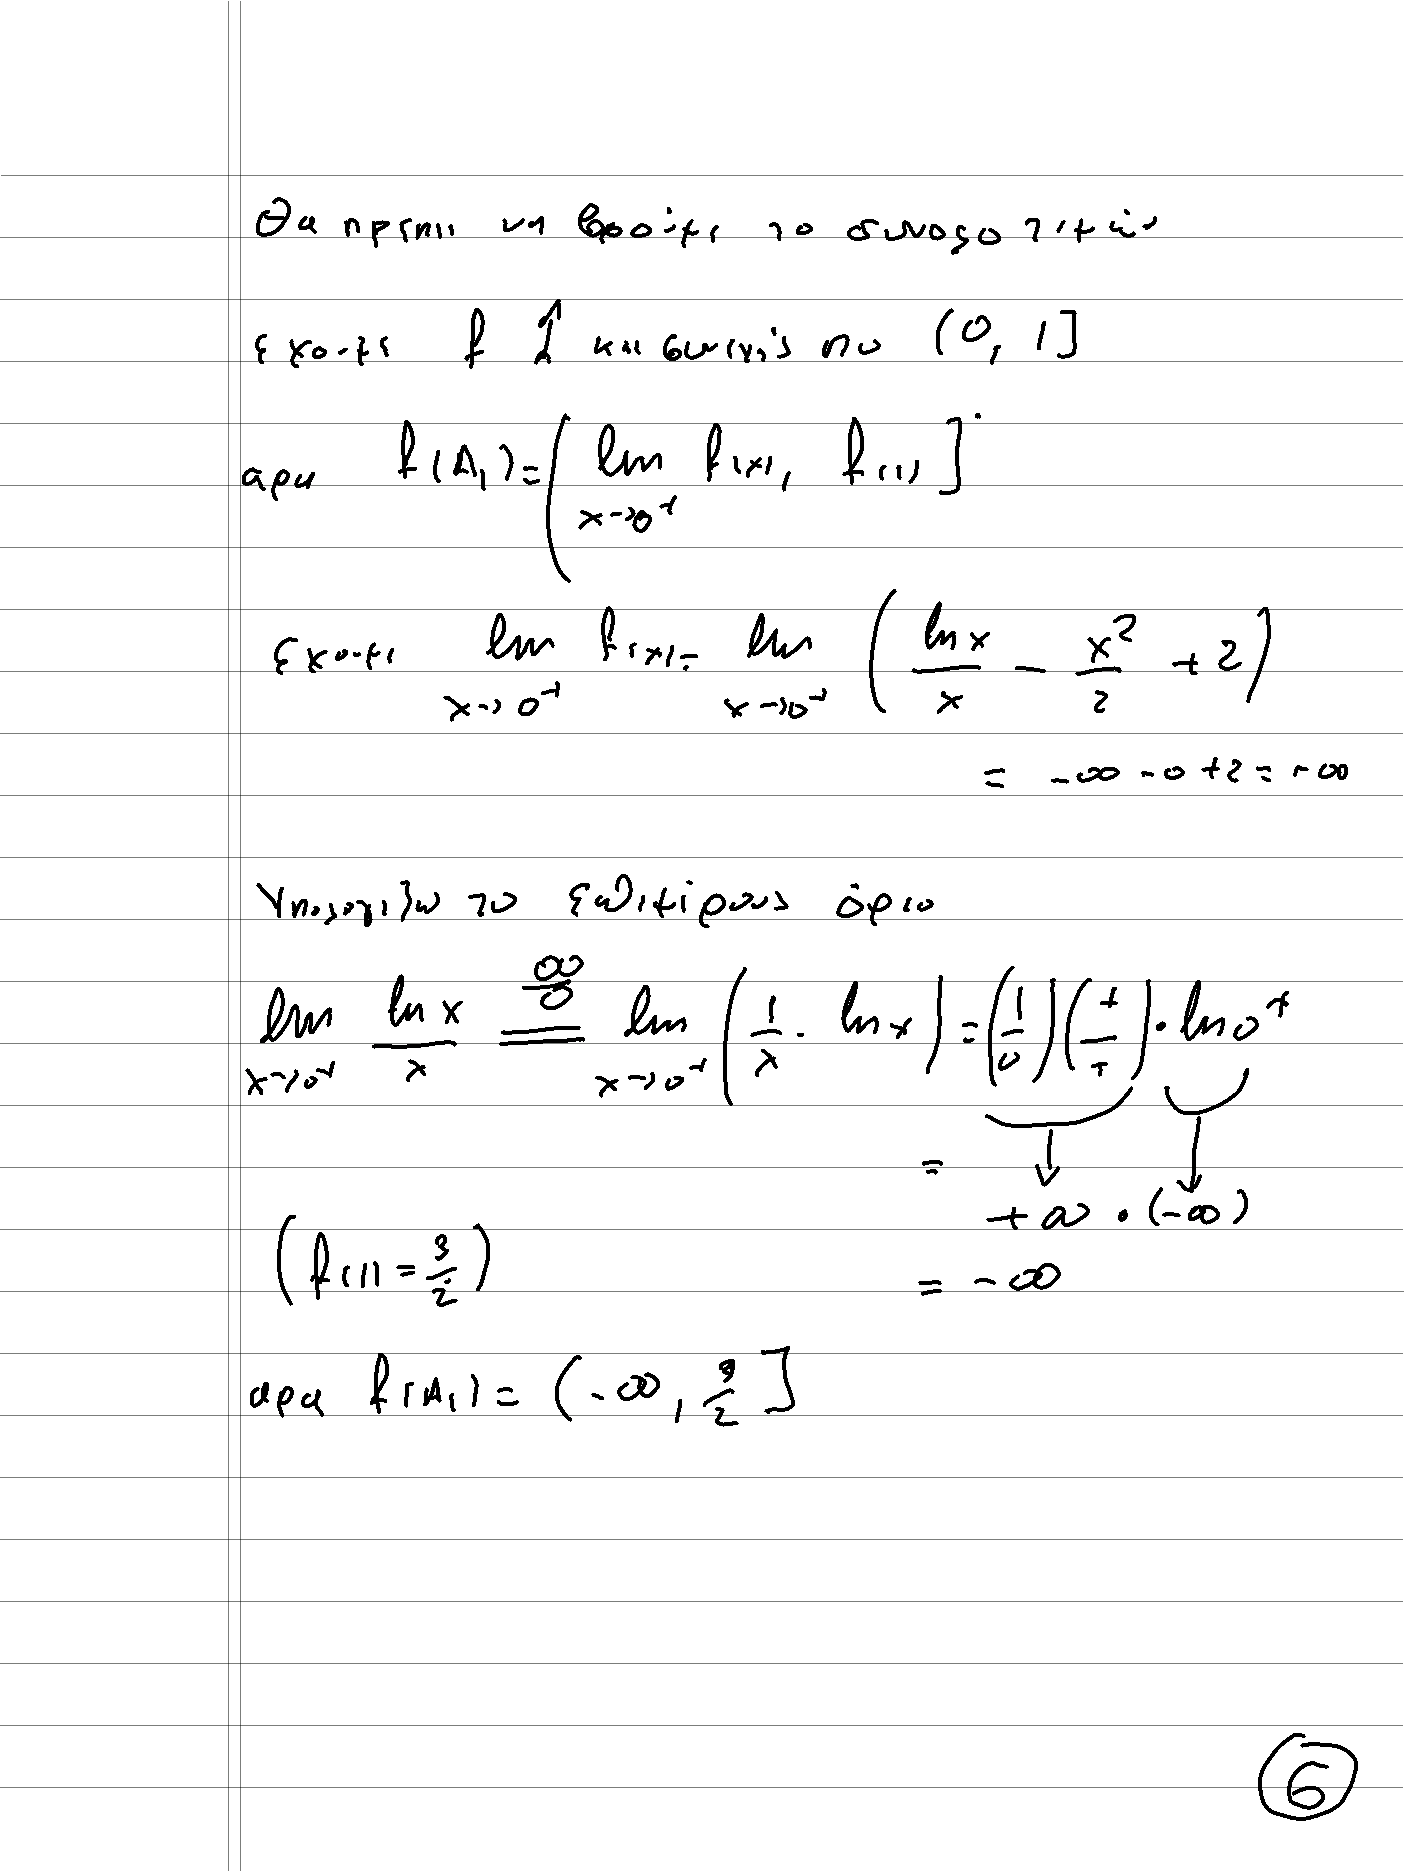 θα πρεπει να βρούμε το συνολο τιμών
εχουμε f ↑ και συνεχής στο (0, 1]
αρα f(A₁) = ( lim x→0⁺ f(x), f(1) ]
εχουμε lim x→0⁺ f(x) = lim x→0⁺ ( ln x / x − x² / 2 + 2 )
= -∞ - 0 + 2 = -∞
Υπολογιζω το επιμέρους όριο
lim x→0⁺ ln x / x =(∞/0)= lim x→0⁺ ( 1/x · ln x ) = (1/0) (+/+) · ln 0⁺
= +∞ · (-∞)
( f(1) = 3/2 ) = -∞
αρα f(A₁) = ( -∞, 3/2 ]
6